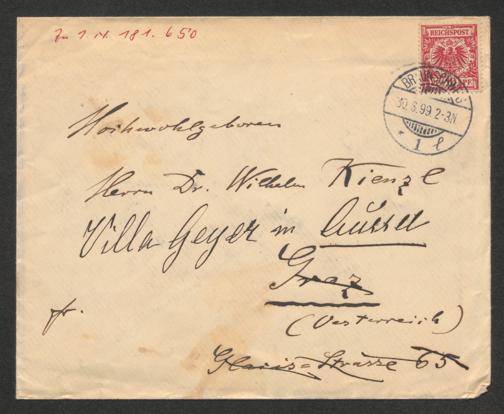 In 1 N. 181.650
REICHSPOST
BRAUNSCHWEIG
30.6.99.2-3N
* 1 l
Hochwohlgeboren
Herrn Dr. Wilhelm Kienzl
Villa Geyer in Aussee
Graz
fr.
(Oesterreich)
Glacis=Strasse 65